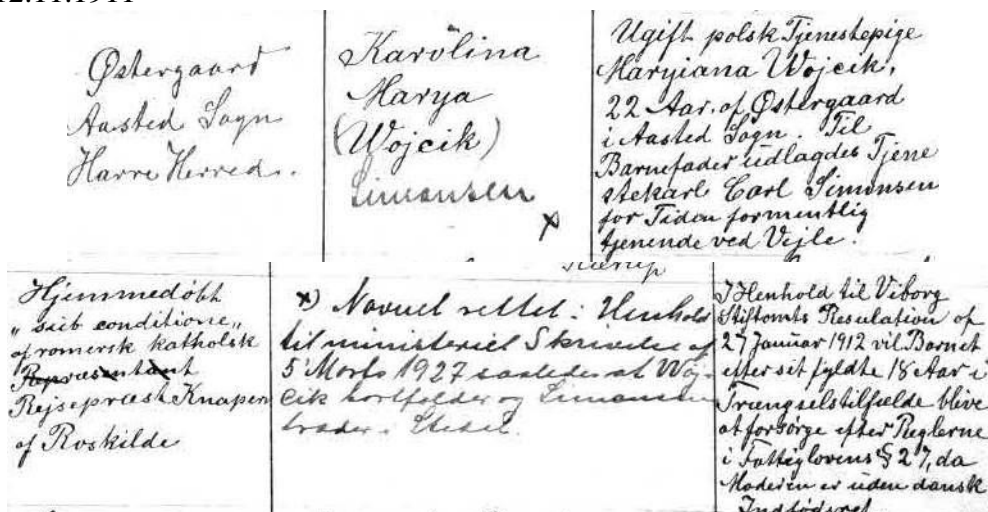 12.11.1911
Østergaard
Aasted Sogn
Harre Herred.
Karolina
Marya
(Wojcik)
Simonsen
x
Ugift polsk Tjenestepige
Maryiana Wojcik,
22 Aar. af Østergaard
i Aasted Sogn. Til
Barnefader udlagdes Tjene
stekarl Carl Simonsen
for Tiden formentlig
tjenende ved Vejle.
Hjemmedøbt
"sub conditione"
af romersk katholsk
Repræsentant
Rejsepræst Knapen
af Roskilde
x) Navnet rettet i Henhold
til ministeriel Skrivelse af
5' Marts 1927 saaledes at Woj-
cik bortfalder og Simonsen
træder i Stedet.
I Henhold til Viborg
Stiftamts Resulation af
27 Januar 1912 vil Barnet
efter sit fyldte 18 Aar i
Trængselstilfælde blive
at forsørge efter Reglerne
i Fattiglovens § 27, da
Moderen er uden dansk
Indfødsret